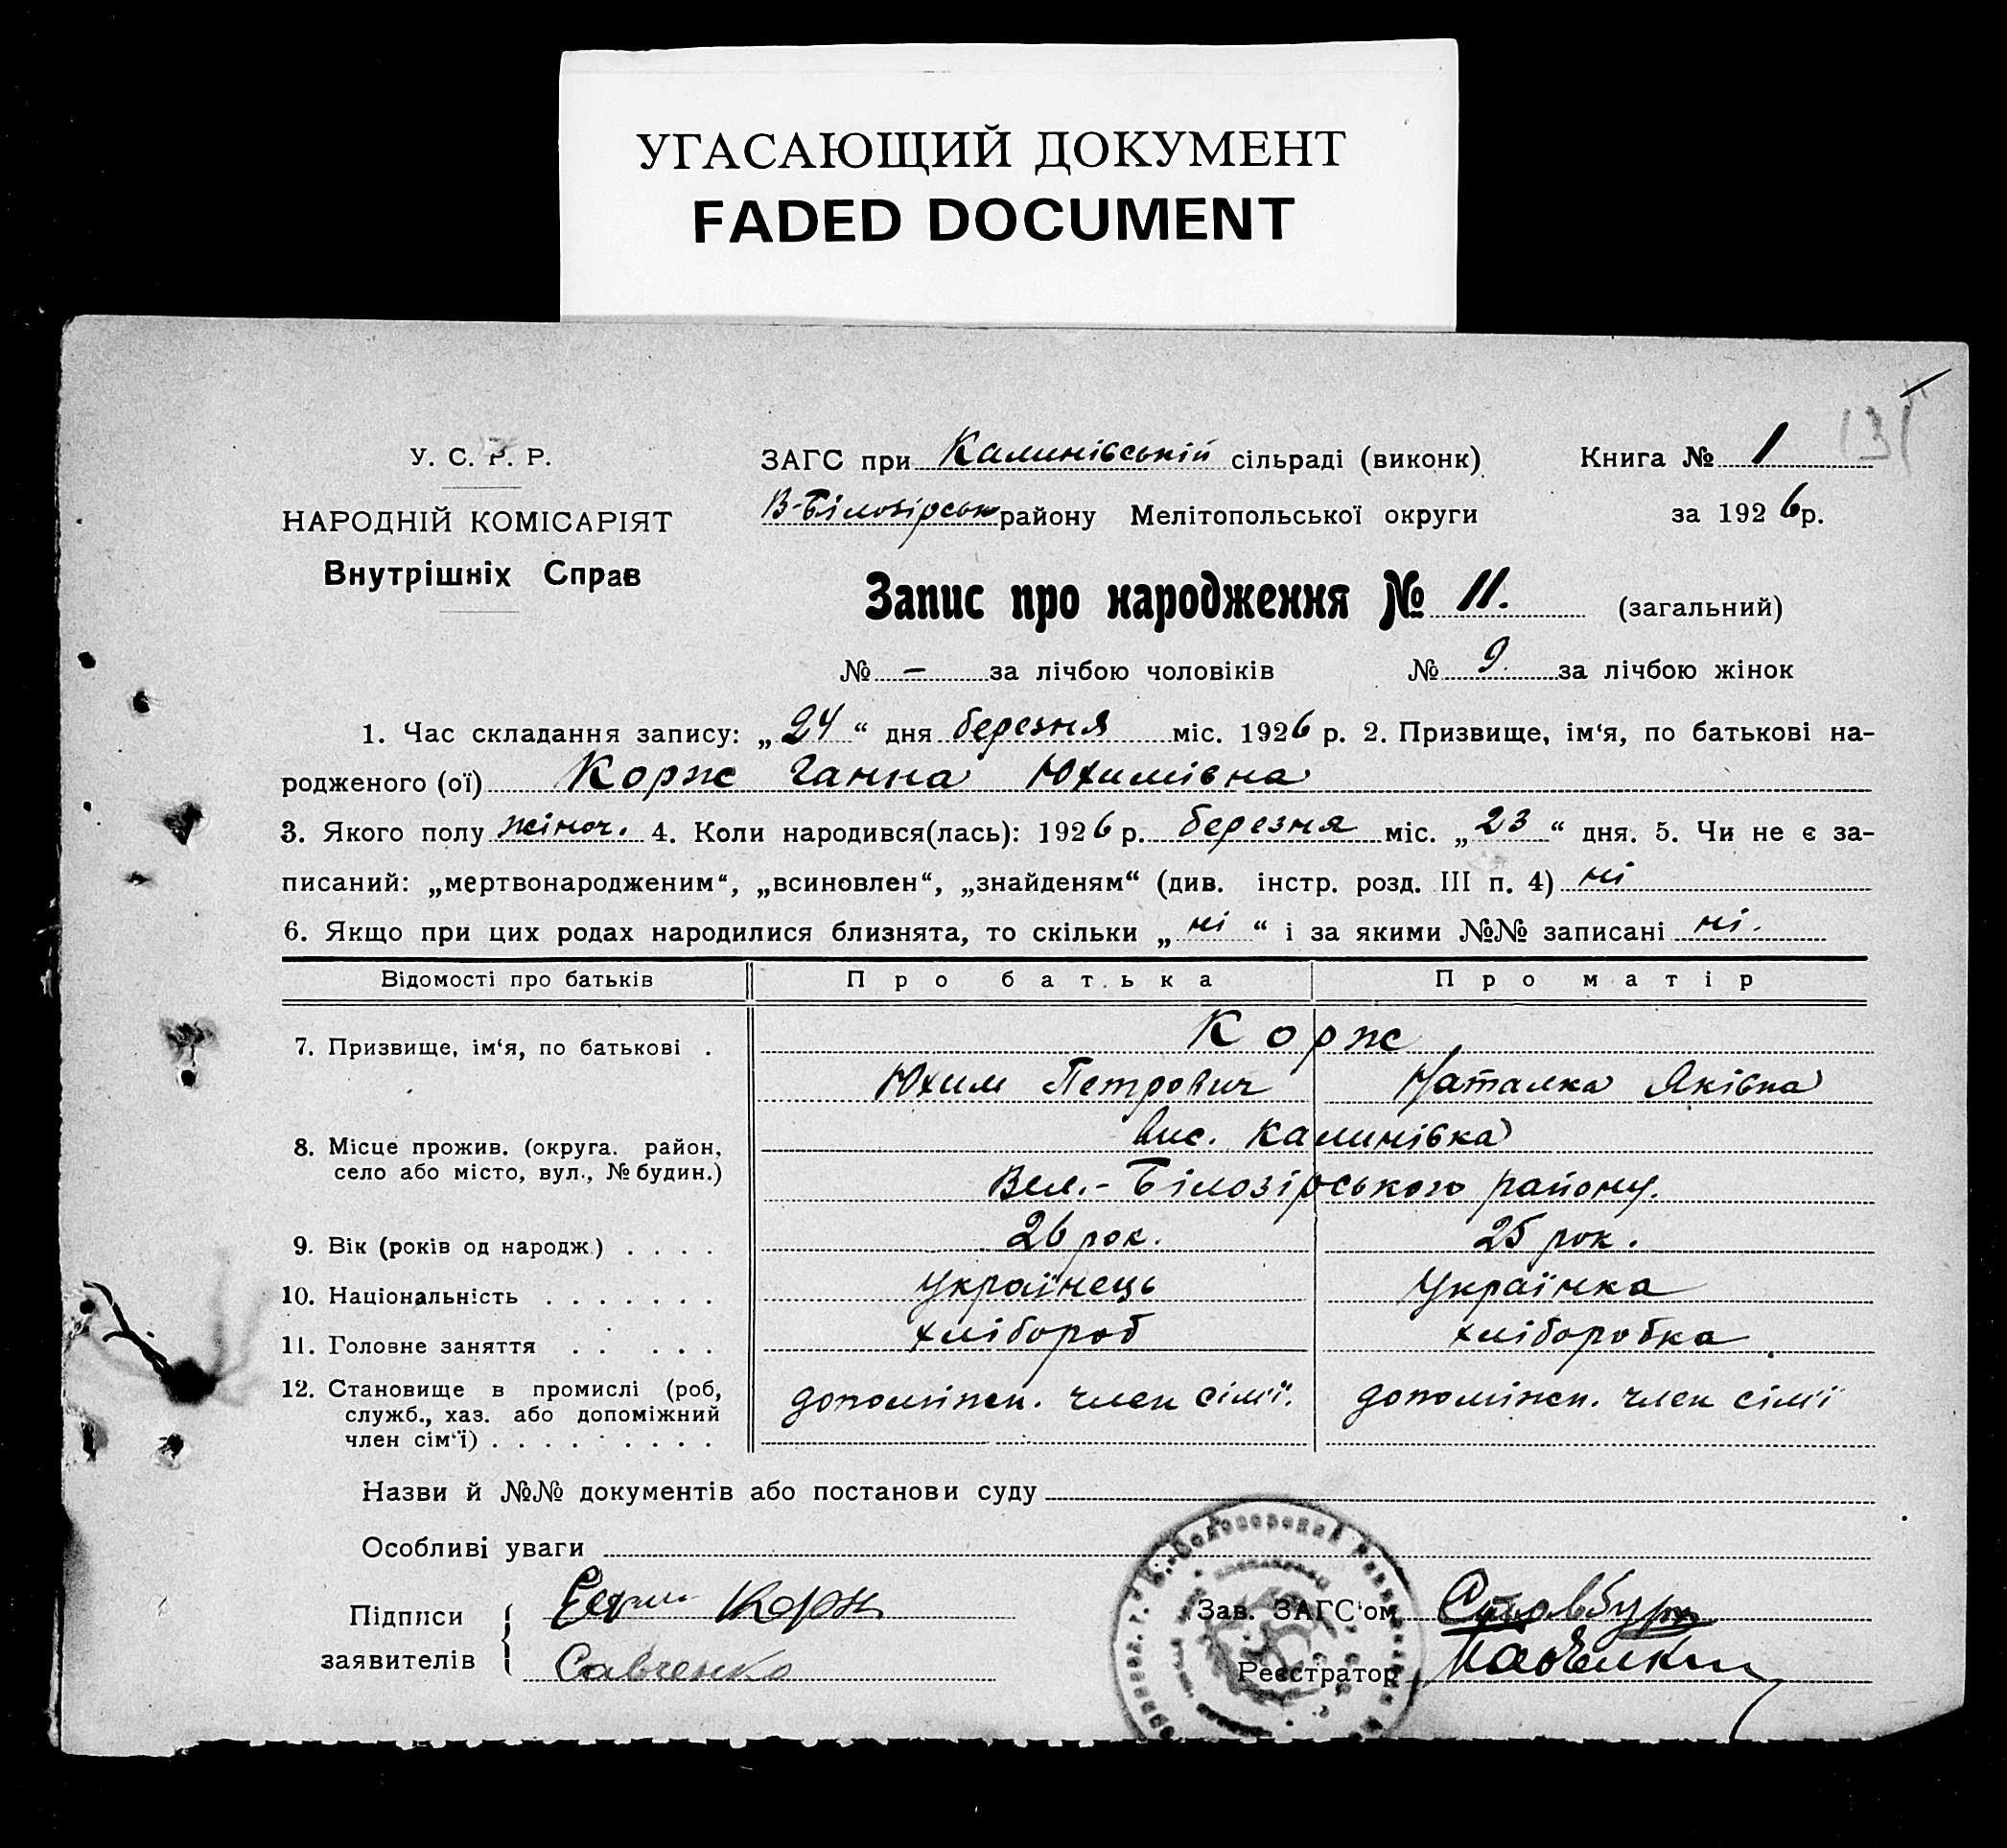 УГАСАЮЩИЙ ДОКУМЕНТ
FADED DOCUMENT
131
У. С. Р. Р.
НАРОДНІЙ КОМІСАРІЯТ
Внутрішніх Справ
ЗАГС при Калинівській сільраді (виконк) Книга № 1
В-Білозірськ району Мелітопольської округи за 1926 р.
Запис про народження № 11. (загальний)
№ – за лічбою чоловіків № 9 за лічбою жінок
1. Час складання запису: „24“ дня березня міс. 1926 р. 2. Призвище, ім‘я, по батькові на-
родженого (ої) Корж Ганна Юхимівна
3. Якого полу жіноч. 4. Коли народився(лась): 1926 р. березня міс. „23“ дня. 5. Чи не є за-
писаний: „мертвонародженим“, „всиновлен“, „знайденям“ (див. інстр. розд. III п. 4) ні
6. Якщо при цих родах народилися близнята, то скільки „ні“ і за якими №№ записані ні.
Відомості про батьків Про батька Про матір
7. Призвище, ім‘я, по батькові . Корж
Юхим Петрович Наталка Яківна
8. Місце прожив. (округа. район, вис. Калинівка
село або місто, вул., № будин.) Вел.-Білозірського району.
9. Вік (років од народж.) . . . . 26 рок. 25 рок.
10. Національність . . . . . . . Українець Українка
11. Головне заняття . . . . . хлібороб хліборобка
12. Становище в промислі (роб, допоміжн. член сім'ї. допоміжн. член сім'ї
служб., хаз. або допоміжний
член сім‘ї) . . . . . . . . .
Назви й №№ документів або постанови суду
Особливі уваги
Підписи Корж Зав. ЗАГС‘ом
заявителів Савченко Реєстратор